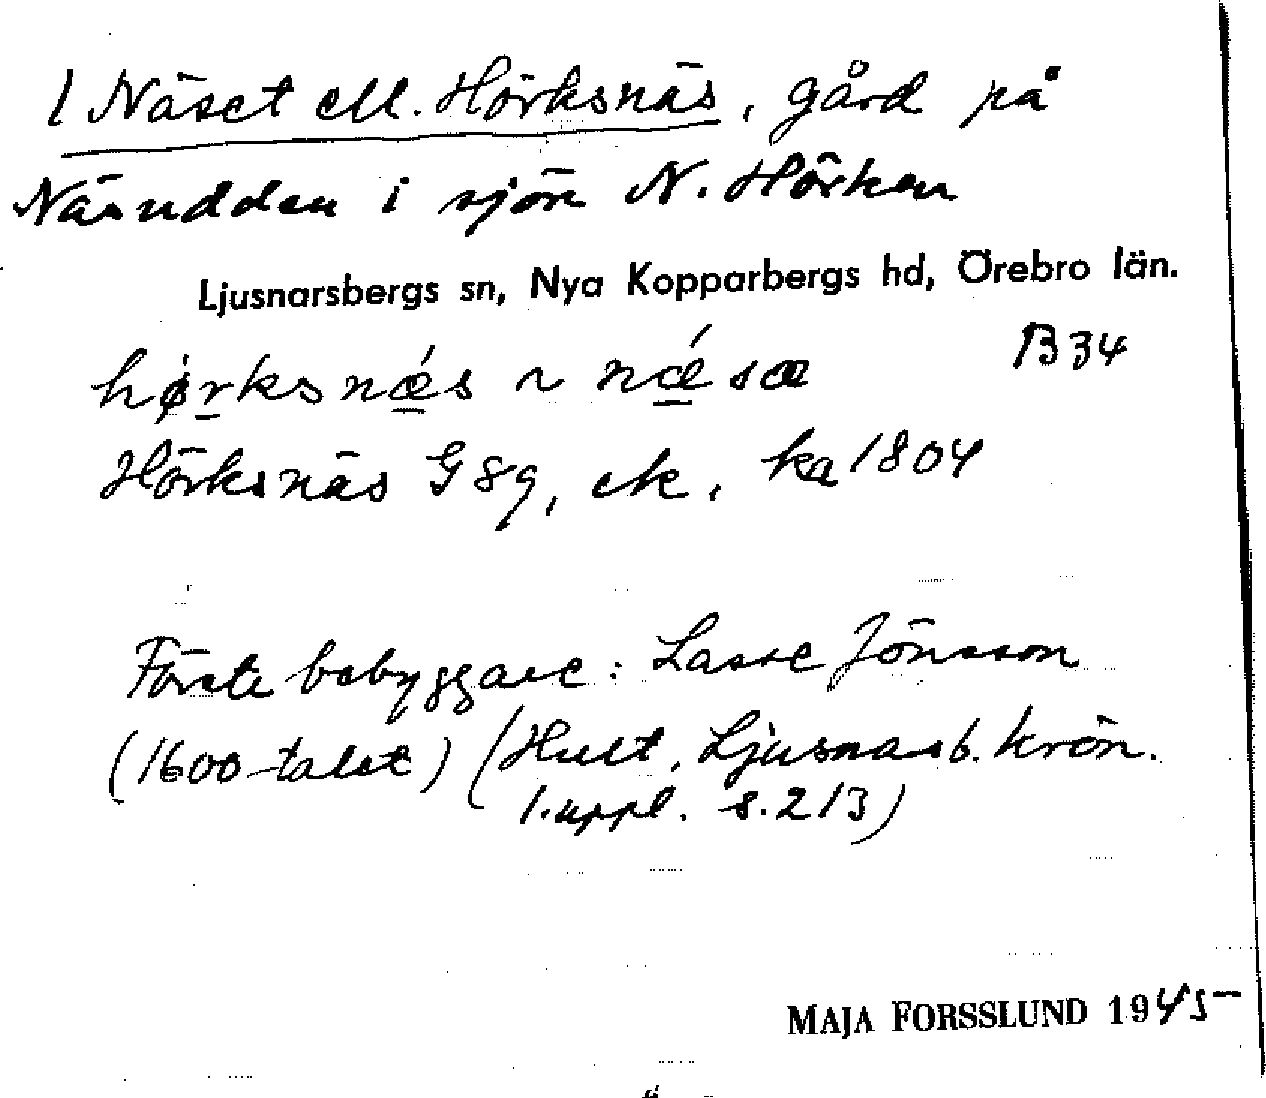 1 Näset ell. Hörksnäs, gård på
Näsudden i sjön N. Hörken
Ljusnarsbergs sn, Nya Kopparbergs hd, Örebro län.
hørksnǽs ~ nǽsæ B 34
Hörksnäs G 89, ek, ka 1804
Förste bebyggare: Lasse Jönsson
(1600-talet) (Hult, Ljusnarsb. krön.
1. uppl. s. 213)
MAJA FORSSLUND 1945